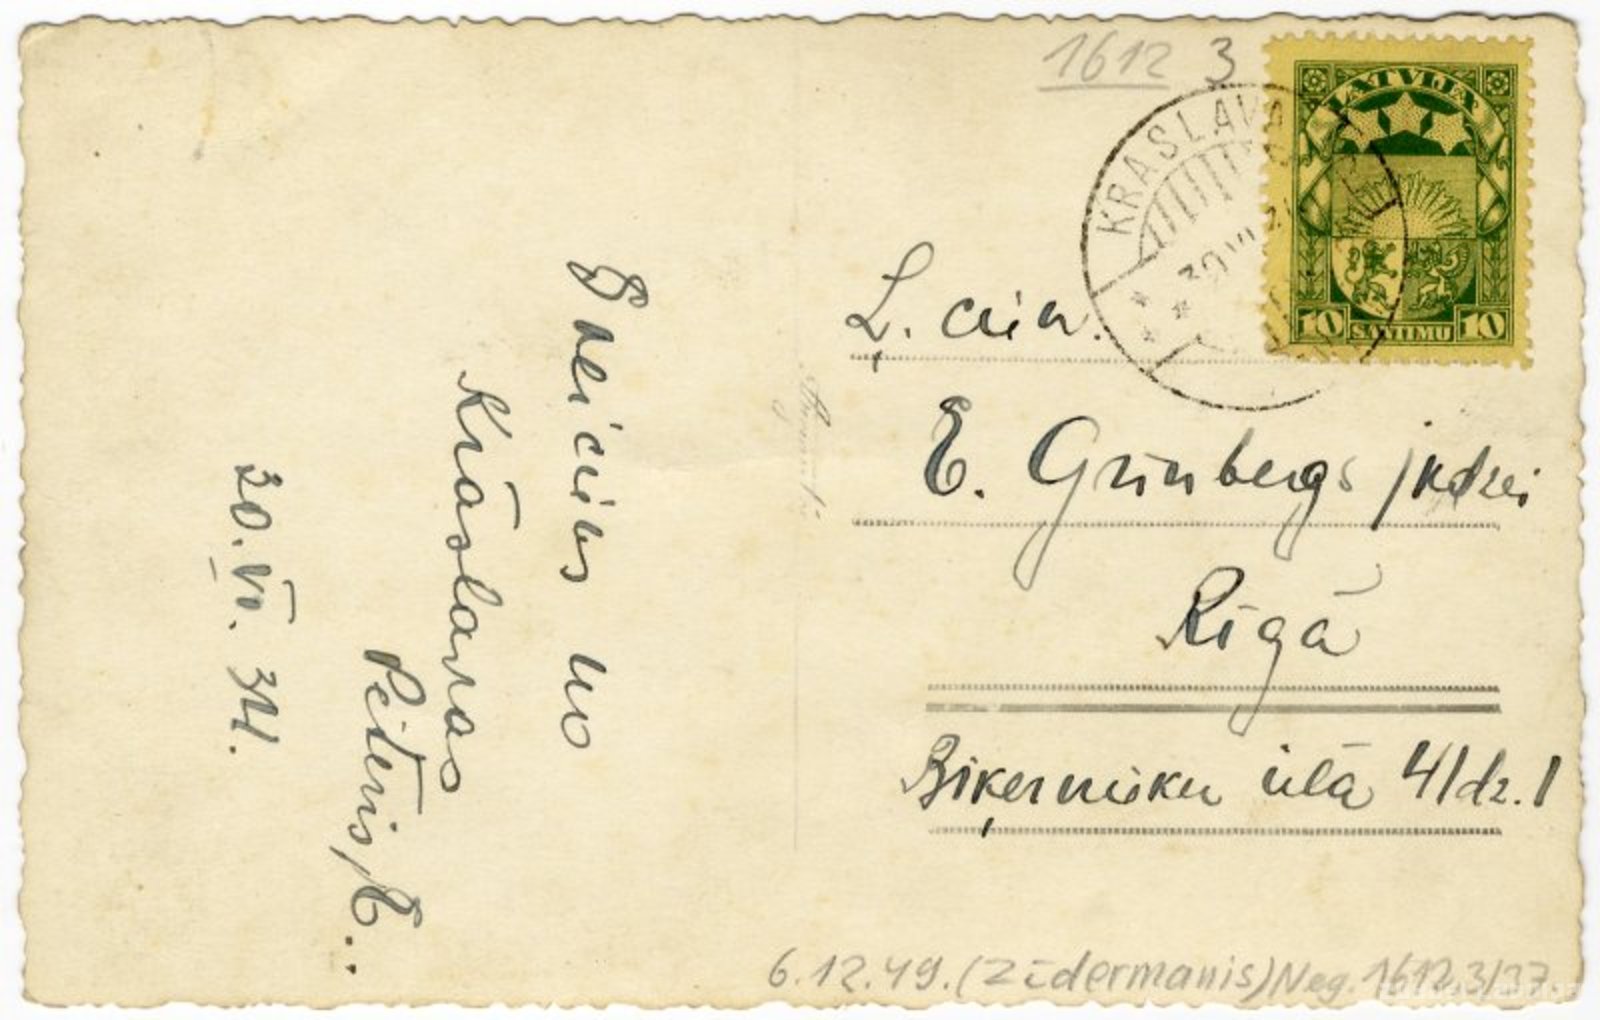 1612 3
LATVIJA
KRASLAVA
30 VI 34
10 SANTIMU 10
Ļ. cien.
E. Grünbergs jkdzei
Rīgā
Biķernieku ielā 41 dz. 1
Sveiciens no
Krāslavas
Pēteris, E..
30. VI. 34.
6.12.49. (Zīdermanis) Neg. 1612.3/37.